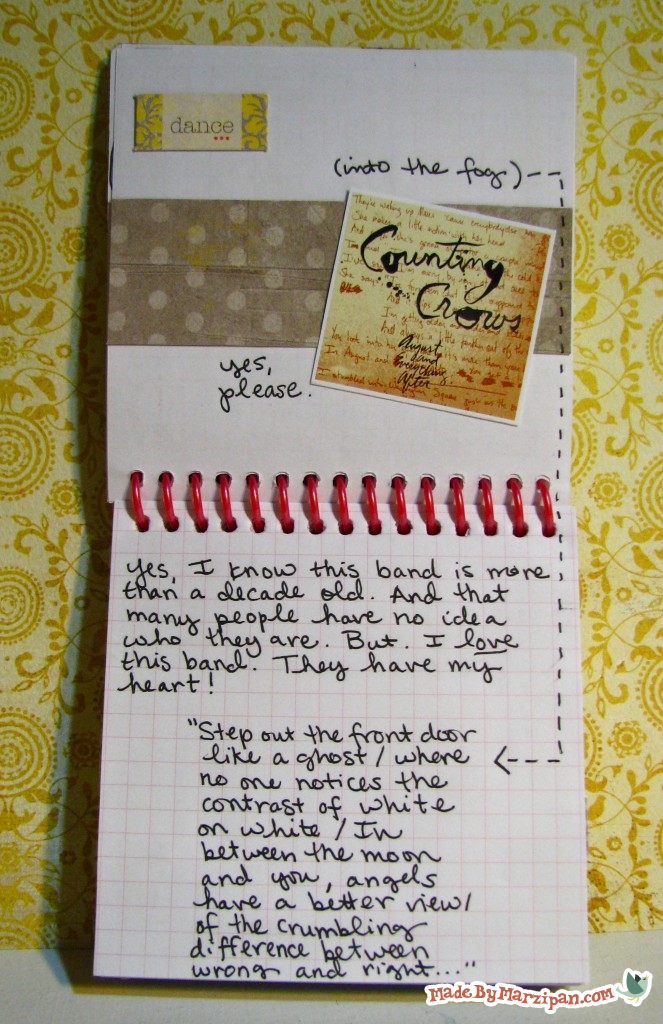 dance
(into the fog)
She makes a little motion with her head
Counting
Crows
August
and
Everything
After
yes,
please.
Yes, I know this band is more
than a decade old. And that
many people have no idea
who they are. But. I love
this band. They have my
heart!
"Step out the front door
like a ghost / where
no one notices the
contrast of white
on white / In
between the moon
and you, angels
have a better view/
of the crumbling
difference between
wrong and right..."
MadeByMarzipan.com